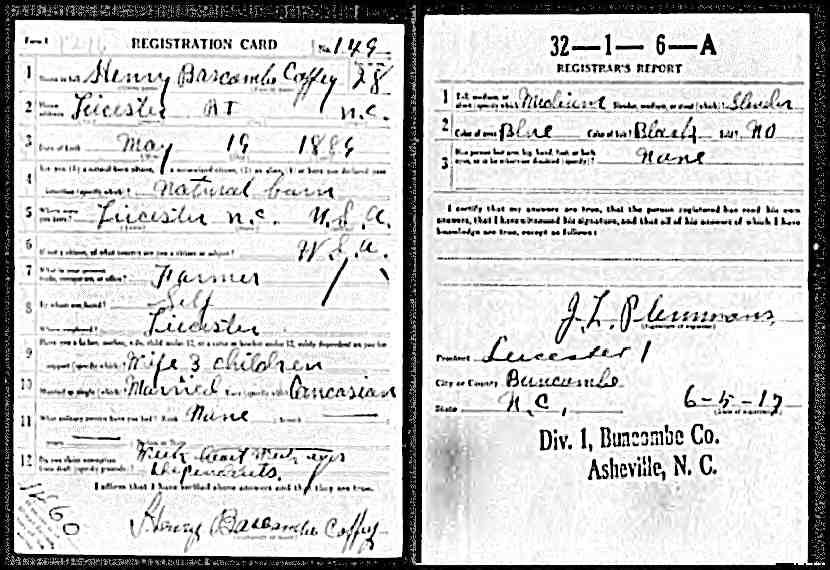 Form 1 REGISTRATION CARD No. 149
1 Henry Bascombe Coffey 28
2 Leicester R 1 N.C.
3 Date of birth May 19 1889
4
(specify which)? Natural born
5 Leicester N.C. U.S.A.
6 If not a citizen, of what country are you a citizen or subject? U.S.A.
7 Farmer
8 By whom employed? Self
Where employed? Leicester
9 Have you a father, mother, wife, child under 12, or a sister or brother under 12, solely dependent on you for
support (specify which)? Wife 3 children
10 Married or single (which)? Married Race (specify which)? Caucasian
11 What military service have you had? Rank None ; branch
years
12 Do you claim exemption Weak heart Weak eyes
from draft (specify grounds)? Dependents.
I affirm that I have verified above answers and that they are true.
Henry Bascombe Coffey
32—1—6—A
REGISTRAR'S REPORT
1 Tall, medium, or short (specify which)? Medium Slender, medium, or stout (which)? Slender
2 Color of eyes? Blue Color of hair? Black Bald? No
3 Has person lost arm, leg, hand, foot, or both
eyes, or is he otherwise disabled (specify)? None
I certify that my answers are true, that the person registered has read his own
answers, that I have witnessed his signature, and that all of his answers of which I have
knowledge are true, except as follows:
J. L. Plemmons
(Signature of registrar)
Precinct Leicester 1
City or County Buncombe
State N.C. 6-5-17
(Date of registration)
Div. 1, Buncombe Co.
Asheville, N. C.